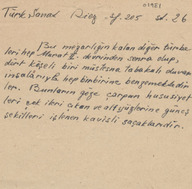 01951
Türk Sanat
Bu mezarlığın kalan diğer türbe
leri hep Murat II. devrinden sonra olup,
dört köşeli biri müstesna tabakalı duvar
inşalarıyla hep birbirine benzemektedir
ler. Bunların göze çarpan hususiyet
leri çok ileri akan ve alt yüzlerine güneş
şekilleri işlenen kavisli saçaklardır.